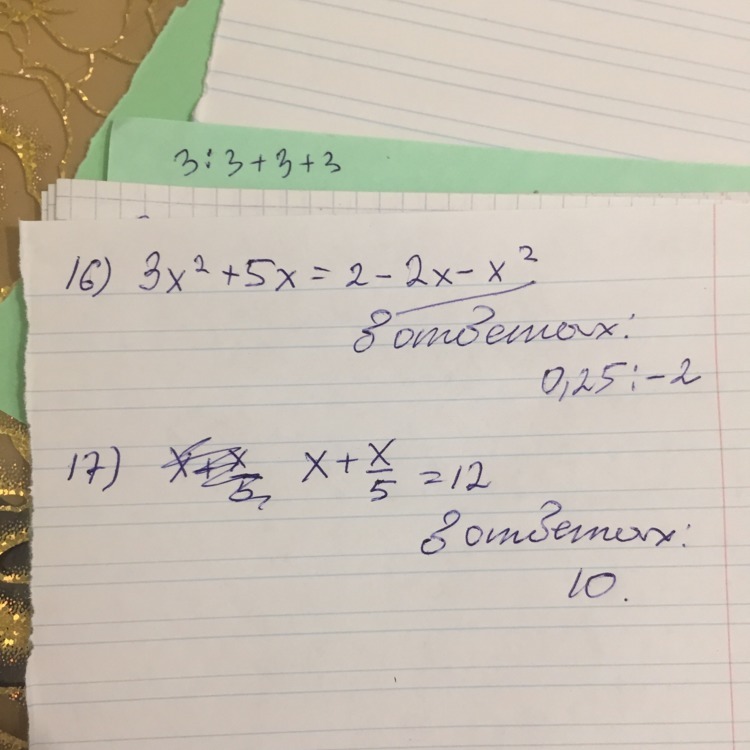 3:3+3+3
16) 3x² + 5x = 2 - 2x - x²
В ответах:
0,25; -2
17) x + x/5 = 12
В ответах:
10.